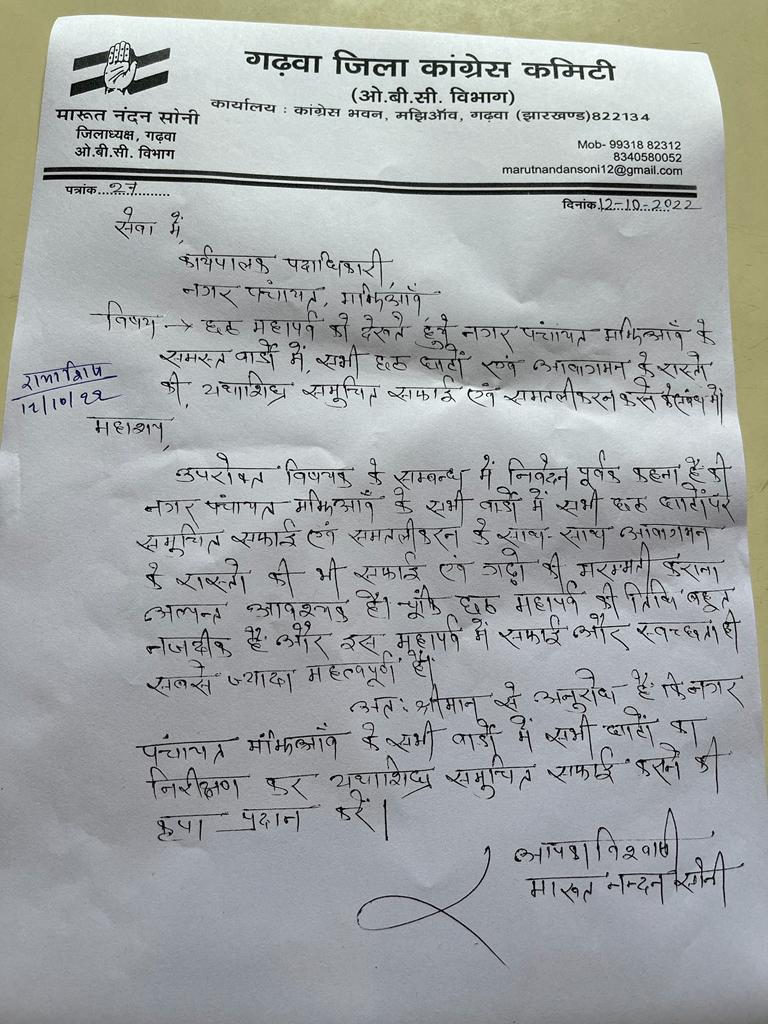 गढ़वा जिला कांग्रेस कमिटी
(ओ.बी.सी. विभाग)
कार्यालय : कांग्रेस भवन, मझिऑव, गढ़वा (झारखण्ड)822134
मारूत नंदन सोनी
जिलाध्यक्ष, गढ़वा
ओ.बी.सी. विभाग
Mob- 99318 82312
8340580052
marutnandansoni12@gmail.com
पत्रांक....27..........
दिनांक.12-10-2022
सेवा में,
कार्यपालक पदाधिकारी,
नगर पंचायत, मझिआँव
विषय → छठ महापर्व को देखते हुये नगर पंचायत मझिआँव के
समस्त वार्डो में, सभी छठ घाटों एवं आवागमन के रास्तो
की, यथाशिध्र समुचित सफाई एवं समतलीकरन करने के संबंध में।
12/10/22
महाशय,
उपरोक्त विषयक के सम्बन्ध में निवेदन पूर्वक कहना है की
नगर पंचायत मझिआँव के सभी वार्डो में सभी छठ घाटों पर
समुचित सफाई एवं समतलीकरन के साथ-साथ आवागमन
के रास्तो की भी सफाई एवं गढ़ो की मरम्मती कराना
अत्यन्त आवश्यक है। चूँकि छठ महापर्व की तिथि बहुत
नजदीक है और इस महापर्व में सफाई और स्वच्छता ही
सबसे ज्यादा महत्वपूर्ण है।
अत: श्रीमान से अनुरोध है कि नगर
पंचायत मझिआँव के सभी वार्डो में सभी घाटों का
निरीक्षण कर यथाशिध्र समुचित सफाई कराने की
कृपा प्रदान करें।
आपका विश्वासी
मारूत नन्दन सोनी